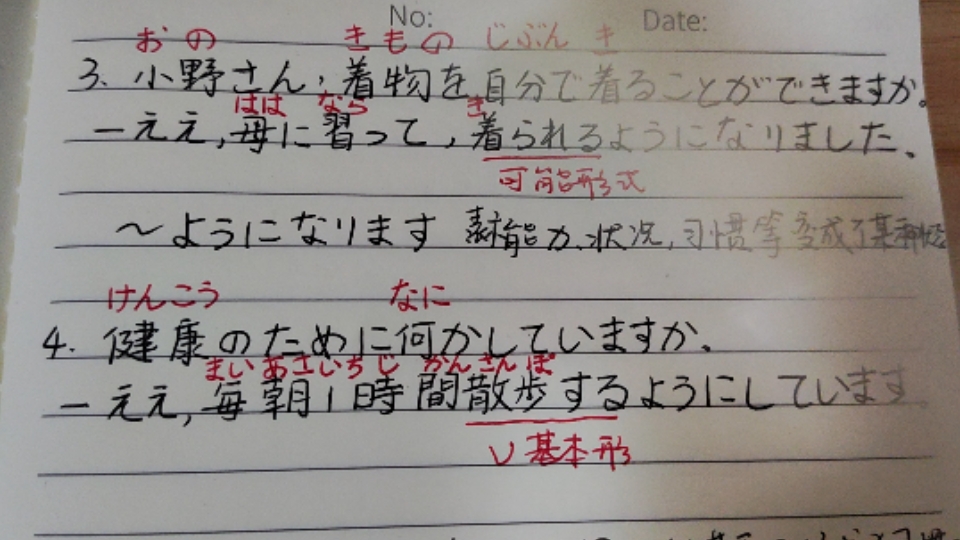 No: Date:
おの きもの じぶん き
3. 小野さん,着物を自分で着ることができますか。
はは なら き
ーええ,母に習って,着られるようになりました。
可能形式
〜ようになります 表能力、状况,习惯等变成了某种状态
けんこう なに
4. 健康のために何かしていますか。
まいあさいちじかんさんぽ
ーええ,毎朝1時間散歩するようにしています
V基本形